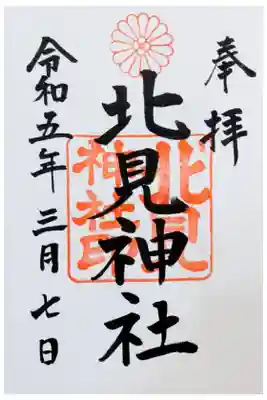 奉拝
北見神社
北見神社印
令和五年三月七日